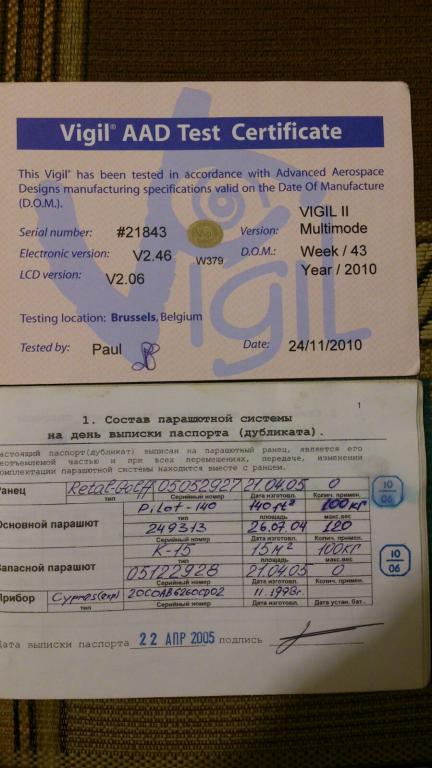 Vigil® AAD Test Certificate
This Vigil® has been tested in accordance with Advanced Aerospace
Designs manufacturing specifications valid on the Date Of Manufacture
(D.O.M.).
Serial number: #21843 Version: VIGIL II Multimode
Electronic version: V2.46 W379 D.O.M.: Week / 43
LCD version: V2.06 Year / 2010
Testing location: Brussels, Belgium
Tested by: Paul Date: 24/11/2010
Vigil
1
1. Состав парашютной системы
на день выписки паспорта (дубликата).
астоящий паспорт(дубликат) выписан на парашютный ранец, является его
еотъемлемой частью и при всех перемещениях, передаче, изменении
омплектации парашютной системы находится вместе с ранцем.
Ранец 05052927 21.04.05 0
тип Серийный номер Дата изготовл. Колич. примен.
Pilot-140 140 ft² 100кг
тип площадь макс.вес
Основной парашют 249313 26.07.04 120
Серийный номер Дата изготовл. Колич. примен.
К-15 15м² 100кг
тип площадь макс.вес
Запасной парашют 05122928 21.04.05 0
Серийный номер Дата изготовл. Колич. примен.
Прибор Cypres(exp) 11.1998г.
тип Серийный номер Дата изготовл. Дата устан. бат.
10
06
10
06
Дата выписки паспорта 22 АПР 2005 подпись